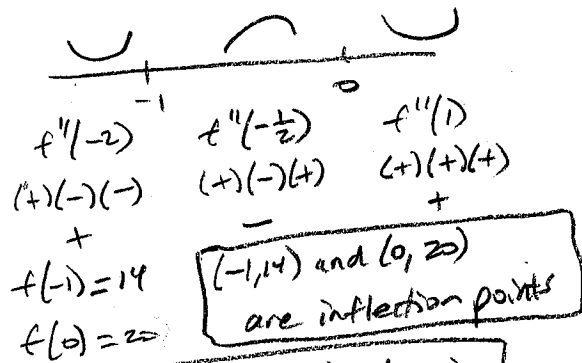 -1 0
f''(-2) f''(-1/2) f''(1)
(+)(-)(-) (+)(-)(+) (+)(+)(+)
+ - +
f(-1)=14 (-1,14) and (0,20)
f(0)=20 are inflection points